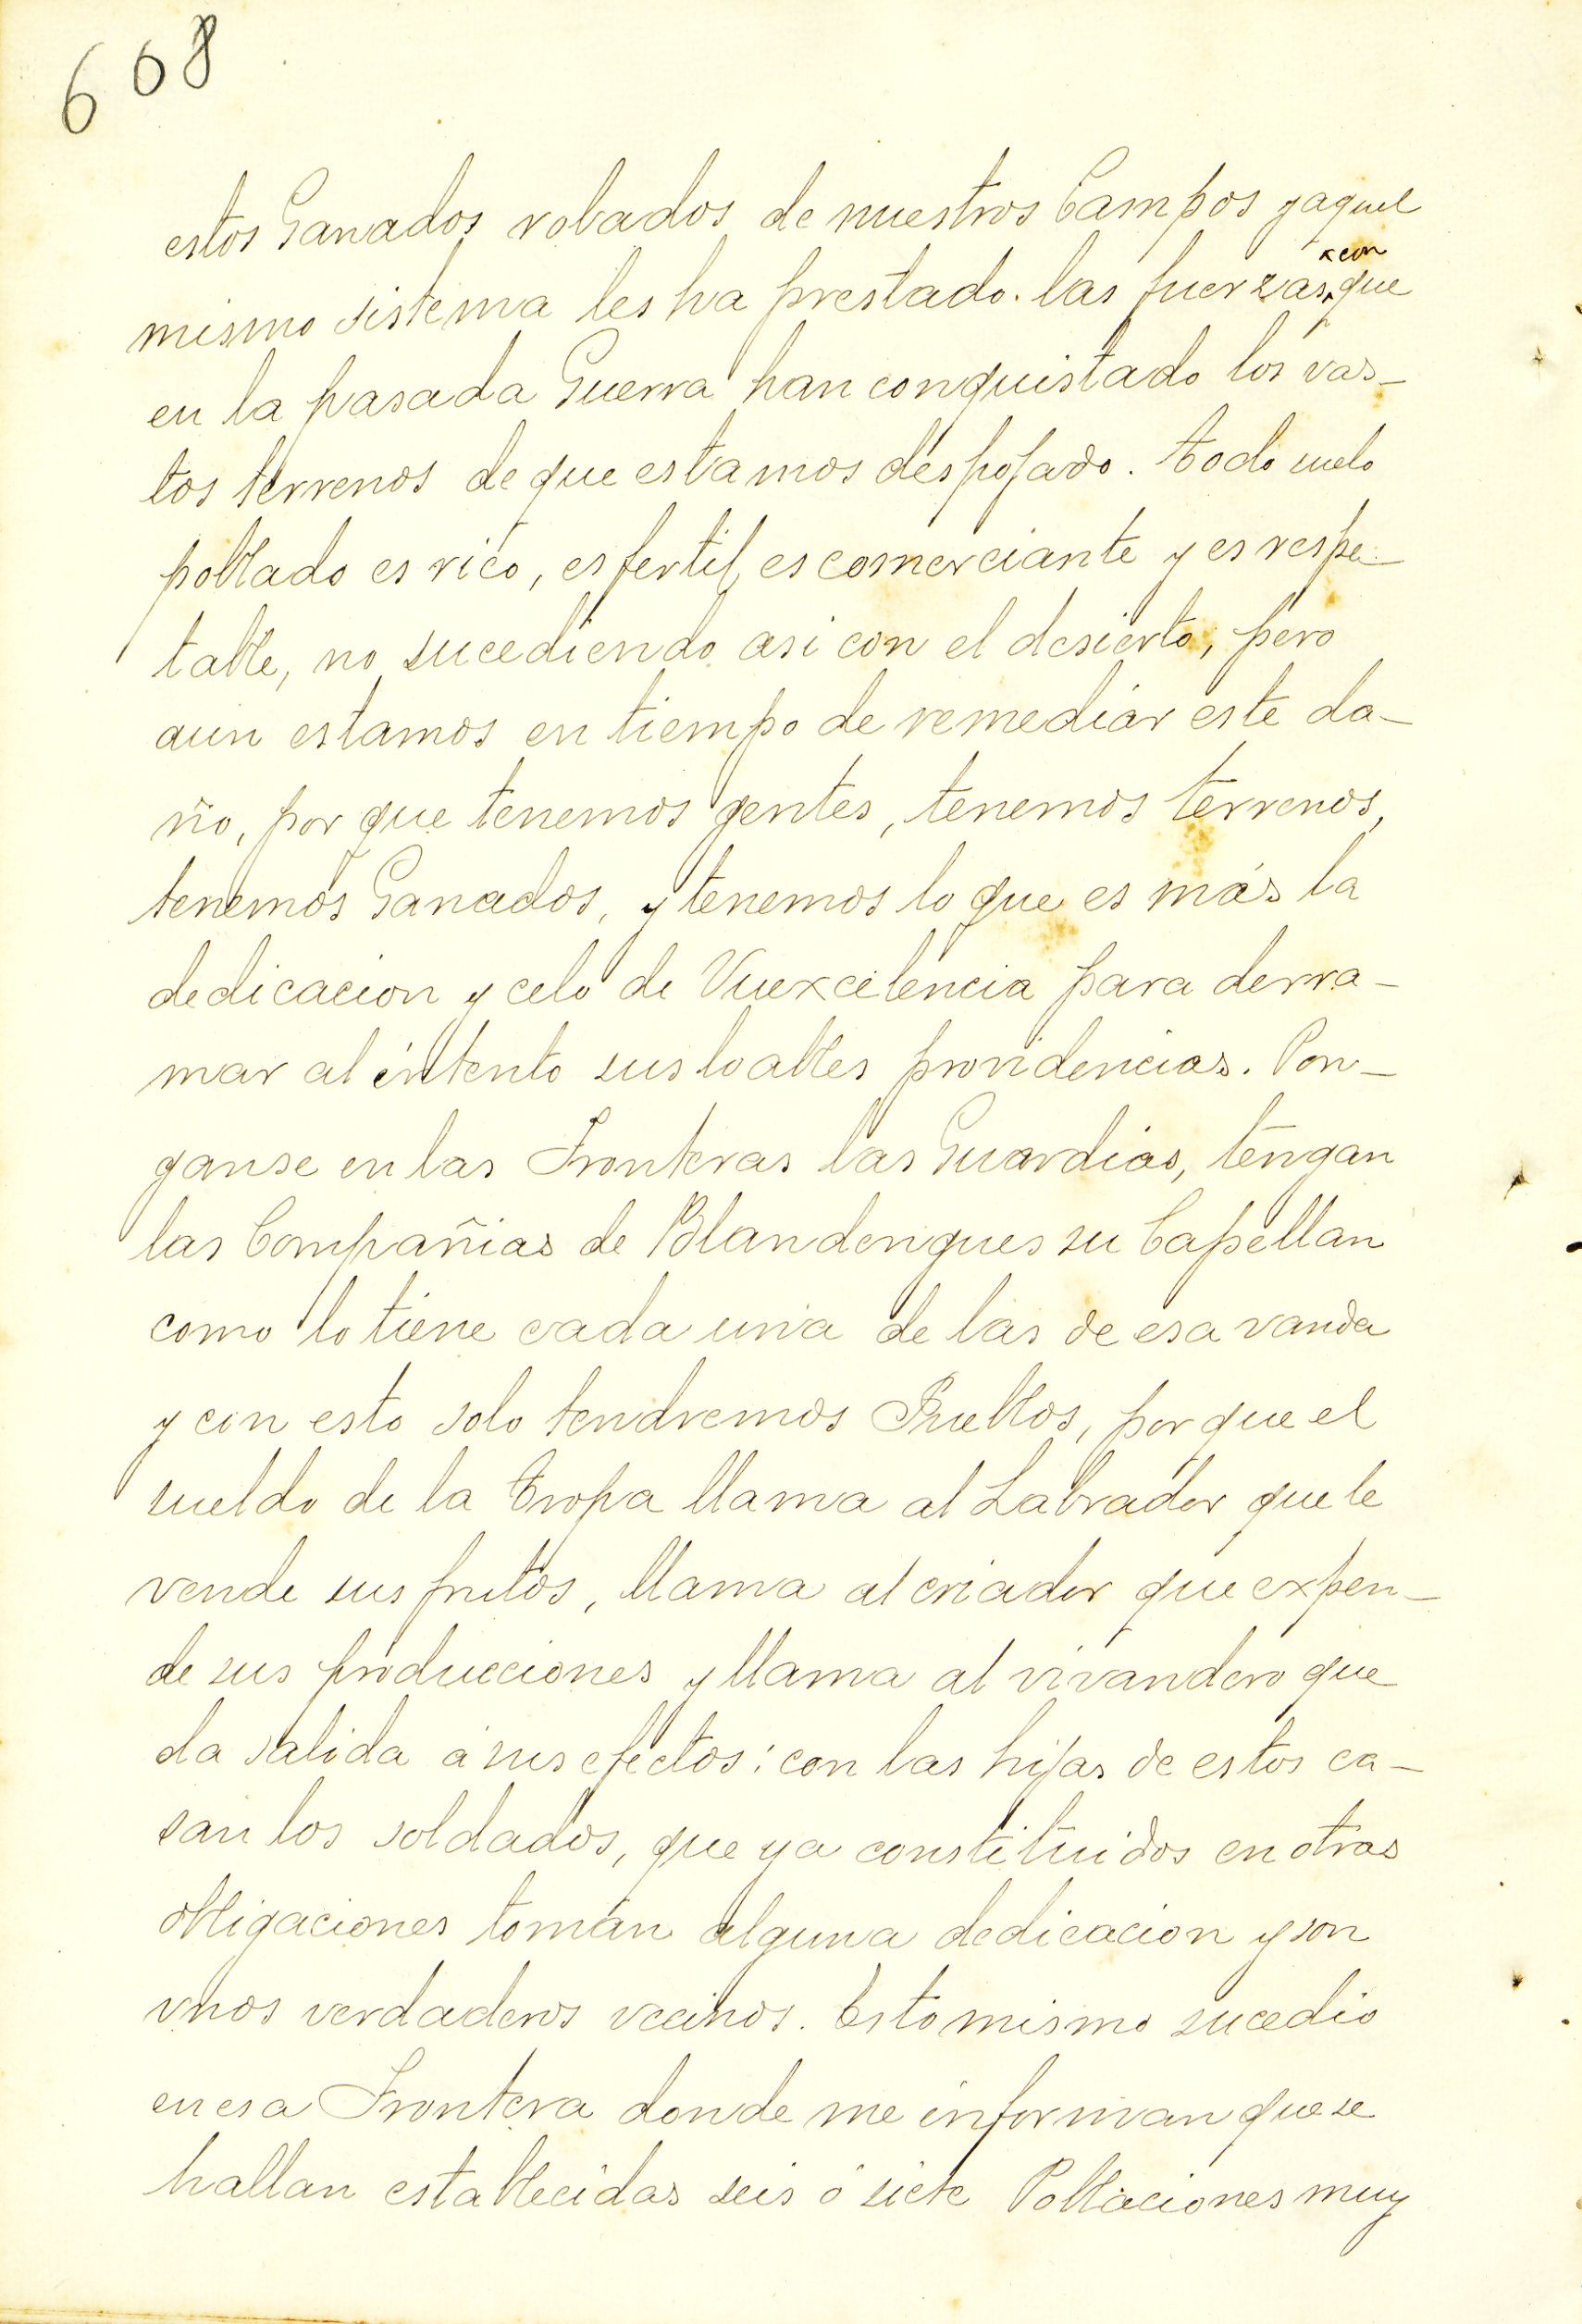 668
estos Ganados robados de nuestros Campos y aquel
mismo sistema les ha prestado las fuerzas con que
en la pasada Guerra han conquistado los vas-
tos terrenos de que estamos despojado. Todo suelo
poblado es rico, es fertil, es comerciante y es respe-
table, no sucediendo asi con el desierto, pero
aun estamos en tiempo de remediar este da-
ño, por que tenemos gentes, tenemos terrenos,
tenemos Ganados, y tenemos lo que es más la
dedicacion y celo de Vuexcelencia para derra-
mar al intento sus loables providencias. Pon-
ganse en las Fronteras las Guardias, tengan
las Compañias de Blandengues su Capellan
como lo tiene cada una de las de esa vanda
y con esto solo tendremos Pueblos, por que el
sueldo de la Tropa llama al Labrador que le
vende sus frutos, llama al criador que expen-
de sus producciones y llama al vivandero que
da salida á sus efectos: con las hijas de estos ca-
san los soldados, que ya constituidos en otras
obligaciones toman alguna dedicacion y son
vnos verdaderos vecinos. Esto mismo sucedio
en esa Frontera donde me informan que se
hallan establecidas seis ó siete Poblaciones muy